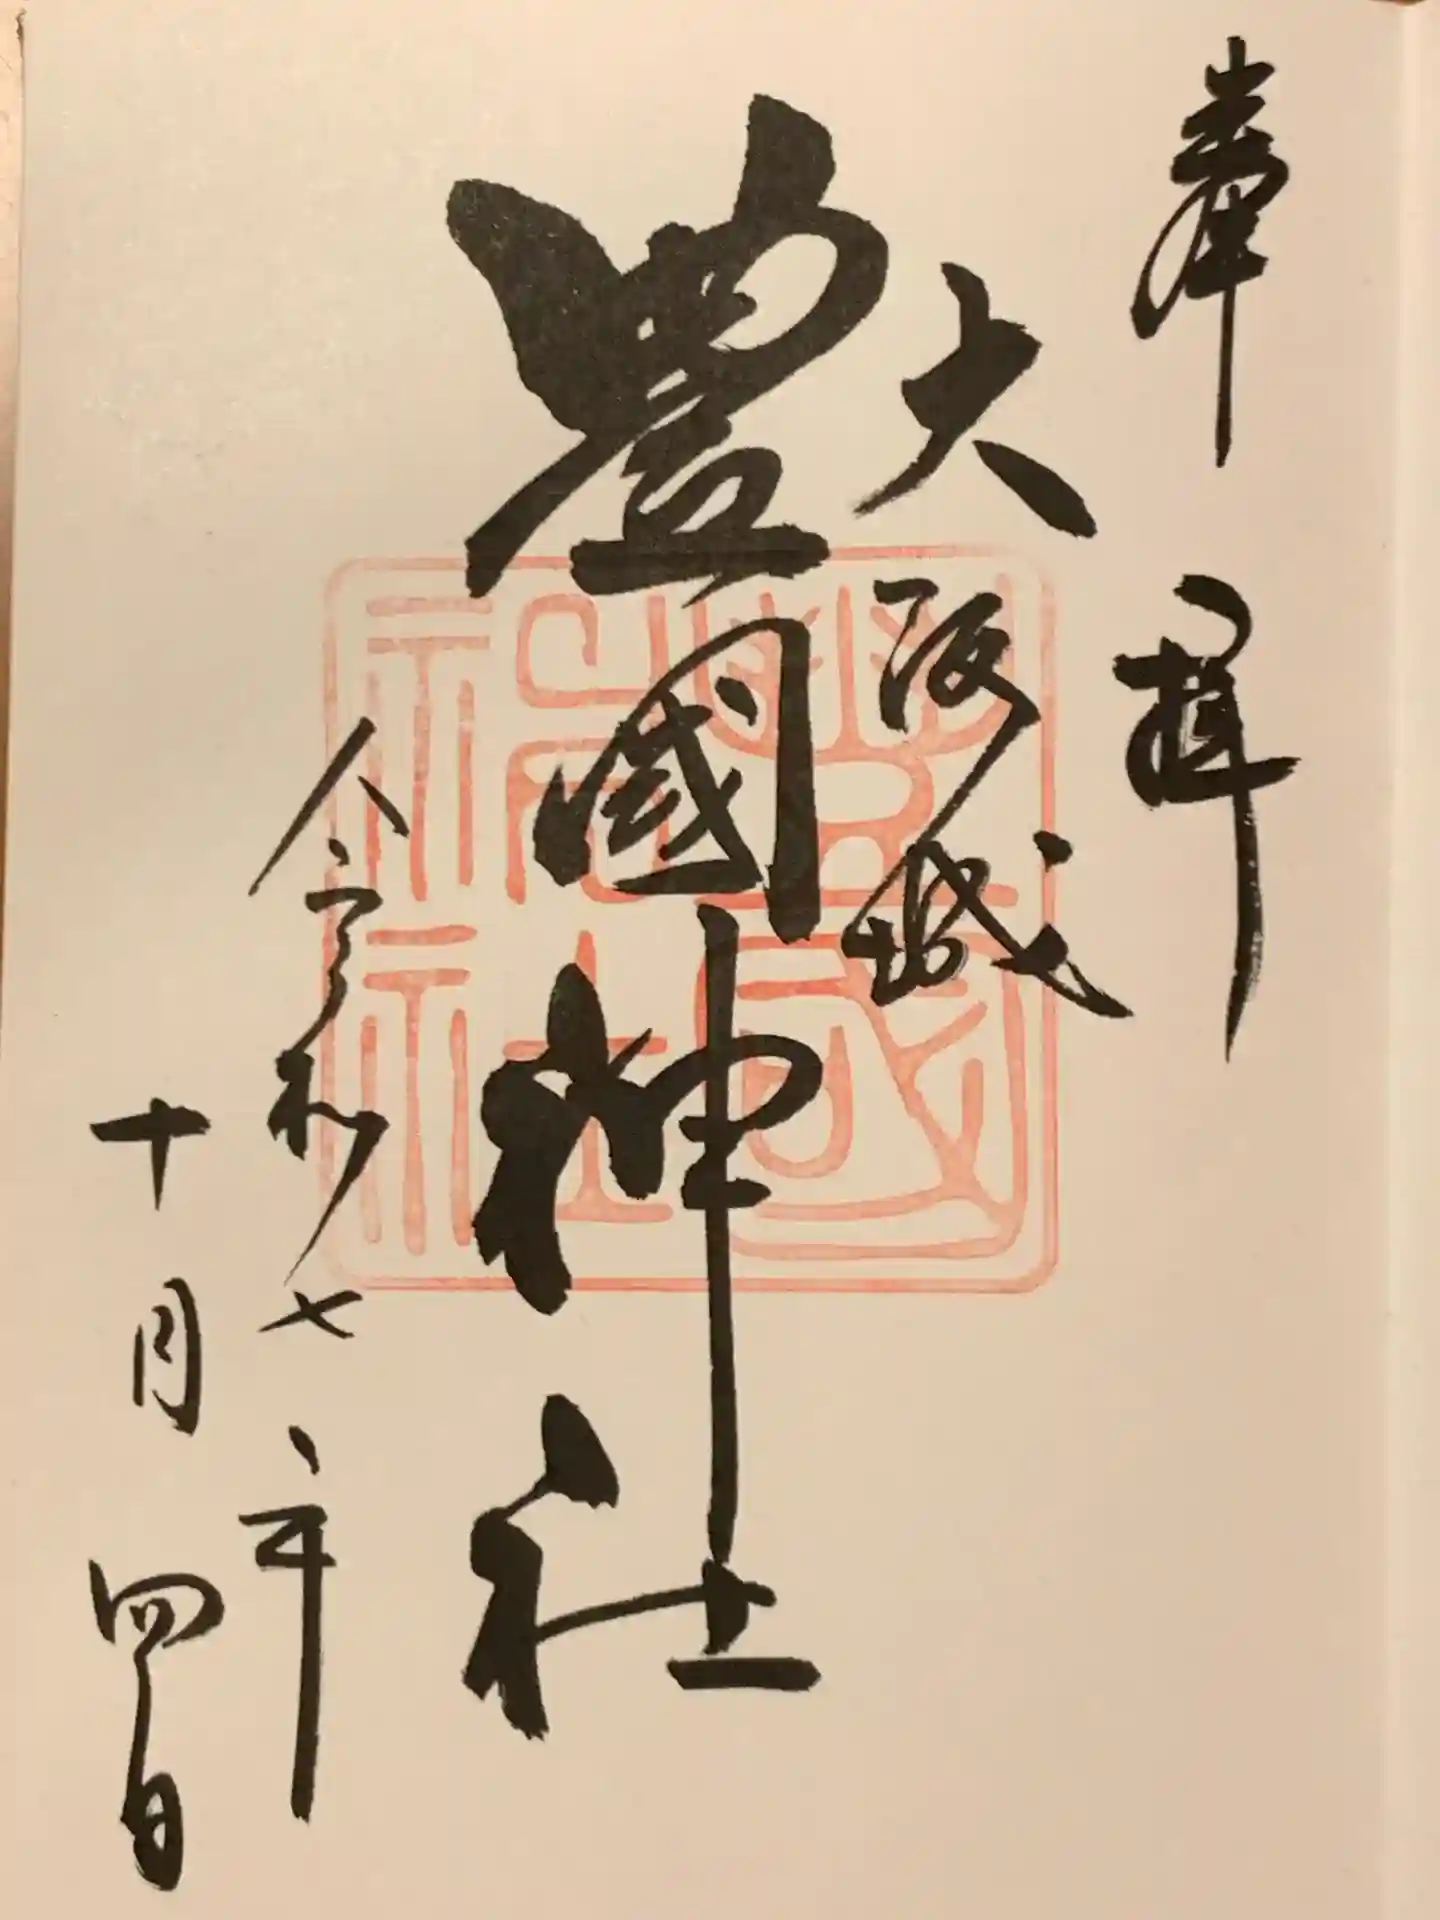 奉拝
大阪城
豊國神社
豊國神社
令和七年
十月四日